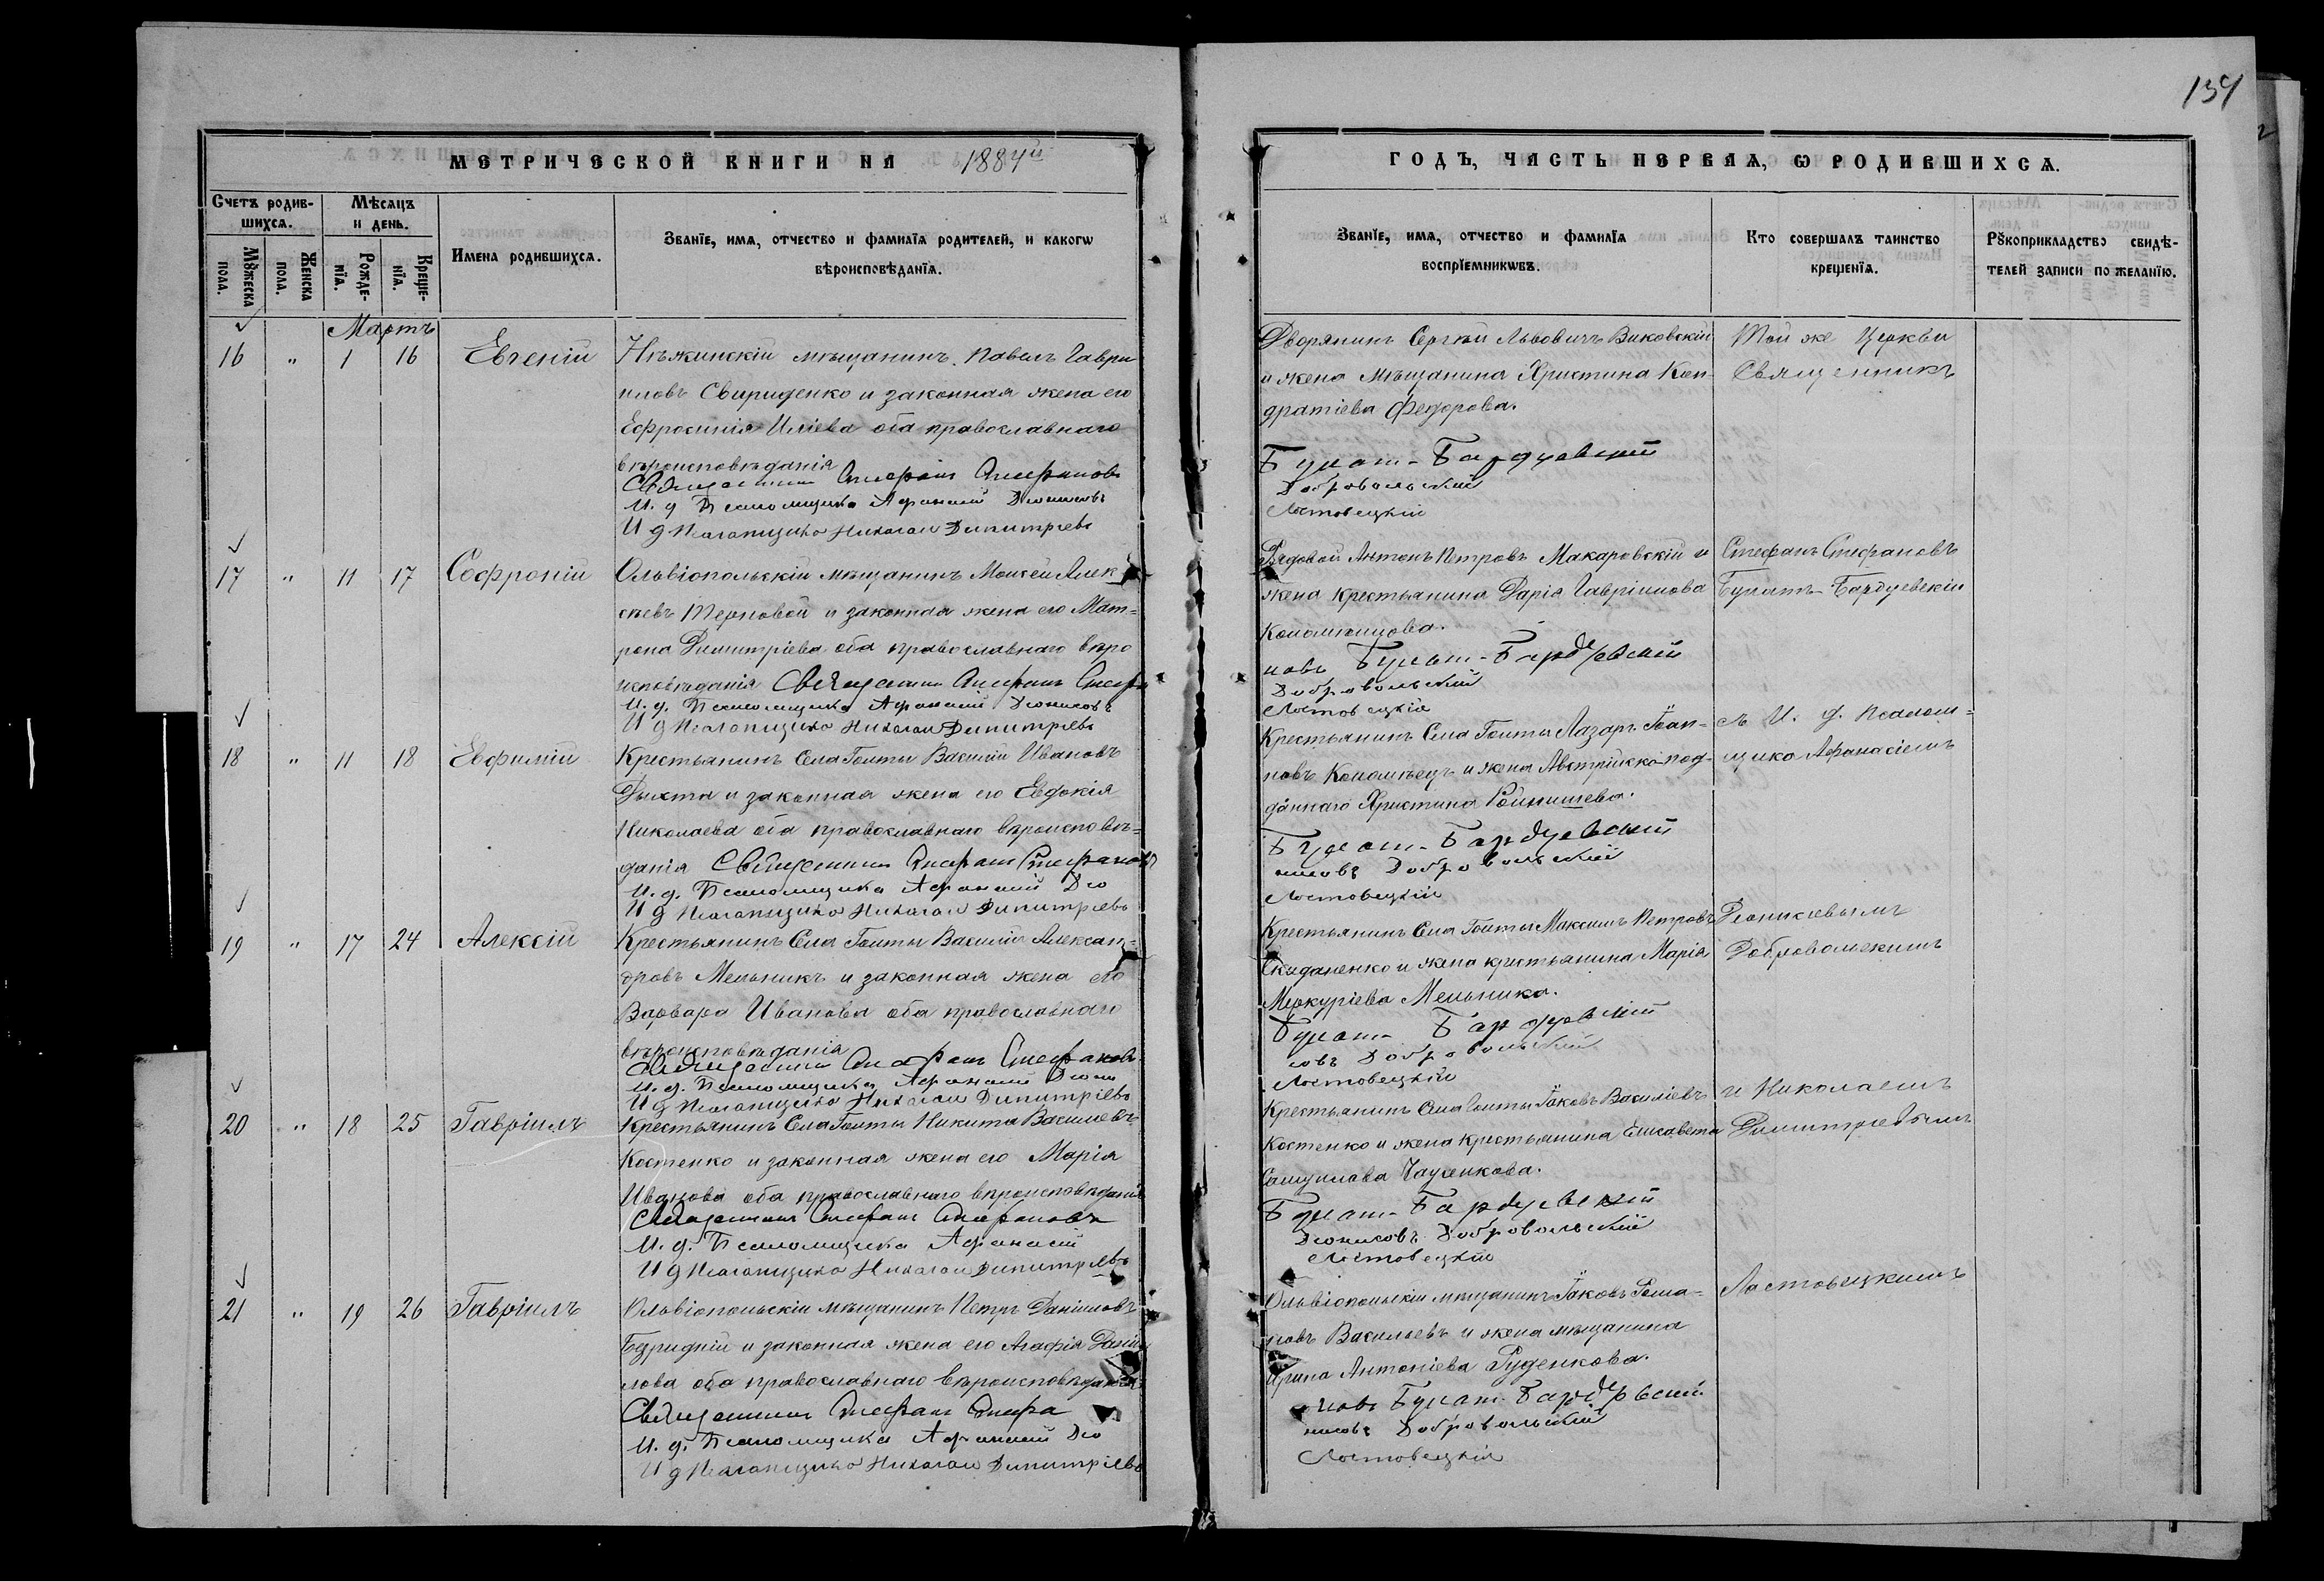 134
МЕТРИЧЕСКОЙ КНИГИ НА 1884й
ГОДЪ, ЧАСТЬ ПЕРВАЯ, Ѡ РОДИВШИХСѦ.
Счетъ родив-
шихсѧ.
Мѣсѧцъ
и день.
Мꙋжеска
пола.
Женска
пола.
Рожде-
нїѧ.
Креще-
нїѧ.
Имена родившихсѧ.
Званїе, имѧ, отчество и фамилїѧ родителей, и какогѡ
вѣроисповѣданїѧ.
Званїе, имѧ, отчество и фамилїѧ
воспрїемникѡвъ.
Кто совершалъ таинство
крещенїѧ.
Рꙋкоприкладство свидѣ-
телей записи по желанїю.
Мартъ
16 " 1 16 Евгеній
Нѣжинскій мѣщанинъ Павелъ Гаври
иловъ Свириденко и законная жена его
Ефросинія Иліева оба православнаго
вѣроисповѣданія
Священникъ Стефанъ Стефановъ
И. д. Псаломщика Афанасій Діонисовъ
И д Псаломщика Николай Димитріевъ
Дворянинъ Сергѣй Львовичъ Виковскій
и жена мѣщанина Христина Кон-
дратіева Федорова.
Булат-Бардуевскій
Добровольскій
Ластовецкій
Той же Церкви
Священникъ
17 " 11 17 Софроній
Ольвіопольскій мѣщанинъ Моисей Алек
сѣевъ Терновой и законная жена его Мат=
рона Димитріева оба православнаго вѣро
исповѣданія Священникъ Стефанъ Стефа
И. д. Псаломщика Афанасій Діонисовъ
И д Псаломщика Николай Димитріевъ
Рядовой Антонъ Петровъ Макаровскій и
жена крестьянина Дарія Гавріилова
Коломѣицова.
новъ Булат-Бардуевскій
Добровольскій
Ластовецкій
Стефанъ Стефановъ
Булатъ-Бардуевскій
18 " 11 18 Евфимій
Крестьянинъ Села Голты Василій Ивановъ
Дыхта и законная жена его Евдокія
Николаева оба православнаго вѣроисповѣ=
данія Священникъ Стефанъ Стефановъ
И. д. Псаломщика Афанасій Діо
И д Псаломщика Николай Димитріевъ
Крестьянинъ Села Голты Лазарь Іоан-
новъ Коломѣецъ и жена Австрійско-под-
даннаго Христина
Булат-Бардуевскій
нисовъ Добровольскій
Ластовецкій
съ И. д. Псалом=
щика Афанасіемъ
19 " 17 24 Алексій
Крестьянинъ Села Голты Василій Алексан-
дровъ Мельникъ и законная жена его
Варвара Иванова оба православнаго
вѣроисповѣданія
Священникъ Стефанъ Стефановъ
И. д. Псаломщика Афанасій Діони
И д Псаломщика Николай Димитріевъ
Крестьянинъ Села Голты Максимъ Петровъ
Скиданенко и жена крестьянина Марія
Меркуріева Мельника.
Булат-Бардуевскій
совъ Добровольскій
Ластовецкій
Діонисіевымъ
Добровольскимъ
20 " 18 25 Гавріилъ
Крестьянинъ Села Голты Никита Василіевъ
Костенко и законная жена его Марія
Иванова оба православнаго вѣроисповѣданія
Священникъ Стефанъ Стефановъ
И. д. Псаломщика Афанасій
И д Псаломщика Николай Димитріевъ
Крестьянинъ Села Голты Іаковъ Василіевъ
Костенко и жена крестьянина Елисавета
Самуилова
Булат-Бардуевскій
Діонисовъ Добровольскій
Ластовецкій
и Николаемъ
Димитріевымъ
21 " 19 26 Гавріилъ
Ольвіопольскій мѣщанинъ Петръ Даніиловъ
Безридній и законная жена его Агафія Даніи
лова оба православнаго вѣроисповѣданія
Священникъ Стефанъ Стефа
И. д. Псаломщика Афанасій Діо
И д Псаломщика Николай Димитріевъ
Ольвіопольскій мѣщанинъ Іаковъ Рома-
новъ Васильевъ и жена мѣщанина
Ирина Антоніева Руденкова.
новъ Булат-Бардуевскій
нисовъ Добровольскій
Ластовецкій
Ластовецкимъ